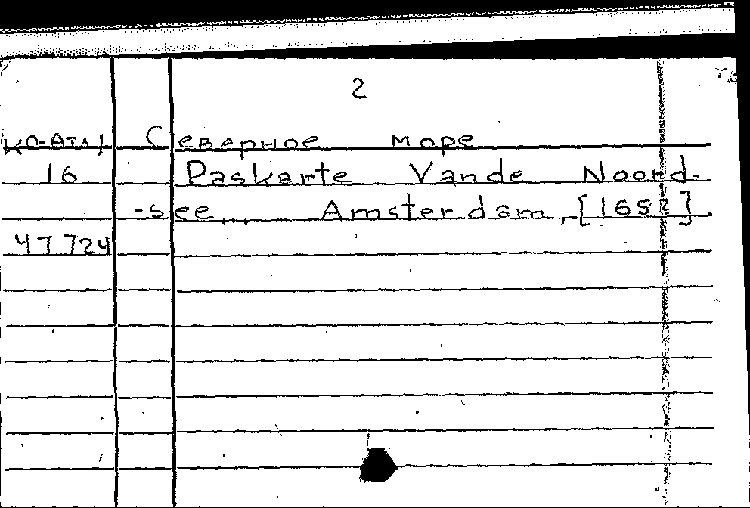 2
Ко-Атл Северное море
16 Paskarte Vande Noord-
-see,,, Amsterdam, [1652]
47724